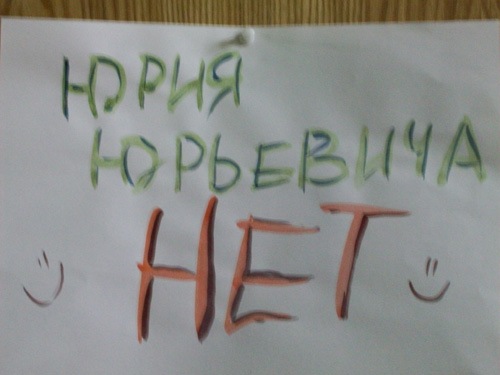 ЮРИЯ
ЮРЬЕВИЧА
НЕТ